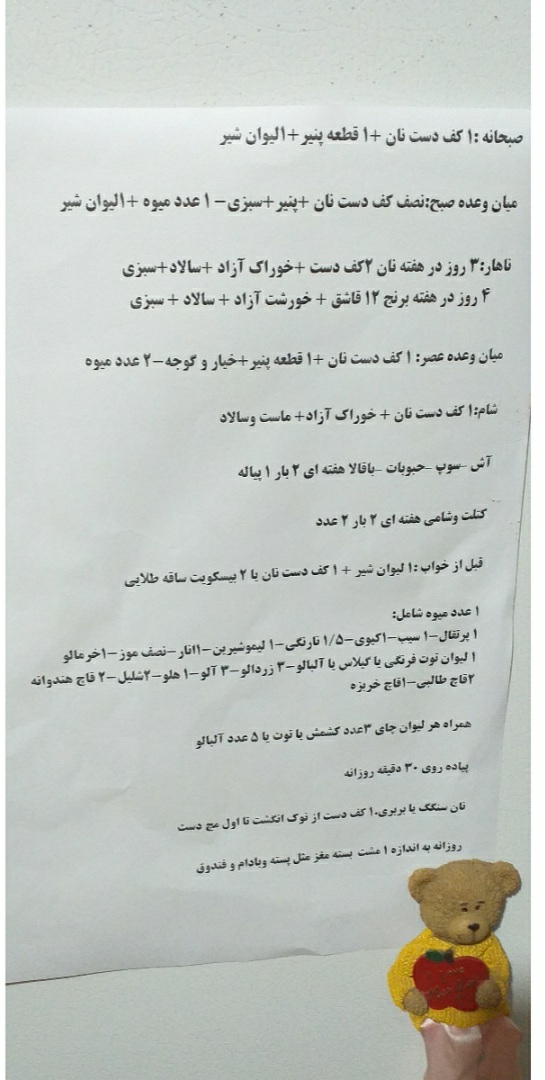 صبحانه :۱ کف دست نان +۱ قطعه پنیر +۱لیوان شیر
میان وعده صبح:نصف کف دست نان +پنیر+سبزی– ۱ عدد میوه +۱لیوان شیر
ناهار:۳ روز در هفته نان ۲کف دست +خوراک آزاد +سالاد+سبزی
۴ روز در هفته برنج ۱۲ قاشق + خورشت آزاد + سالاد + سبزی
میان وعده عصر: ۱ کف دست نان +۱ قطعه پنیر+خیار و گوجه–۲ عدد میوه
شام:۱ کف دست نان + خوراک آزاد+ ماست وسالاد
آش –سوپ –حبوبات –باقالا هفته ای ۲ بار ۱ پیاله
کتلت وشامی هفته ای ۲ بار ۲ عدد
قبل از خواب :۱ لیوان شیر + ۱ کف دست نان یا ۲ بیسکویت ساقه طلایی
۱ عدد میوه شامل:
۱ پرتقال–۱ سیب–۱کیوی–۱/۵ نارنگی–۱ لیموشیرین–۱انار–نصف موز–۱خرمالو
۱ لیوان توت فرنگی یا گیلاس یا آلبالو–۳ زردآلو–۳ آلو–۱ هلو–۲شلیل–۲ قاچ هندوانه
۲قاچ طالبی–۱قاچ خربزه
همراه هر لیوان چای ۳عدد کشمش یا توت یا ۵ عدد آلبالو
پیاده روی ۳۰ دقیقه روزانه
نان سنگک یا بربری.۱ کف دست از نوک انگشت تا اول مچ دست
روزانه به اندازه ۱ مشت بسته مغز مثل پسته وبادام و فندوق